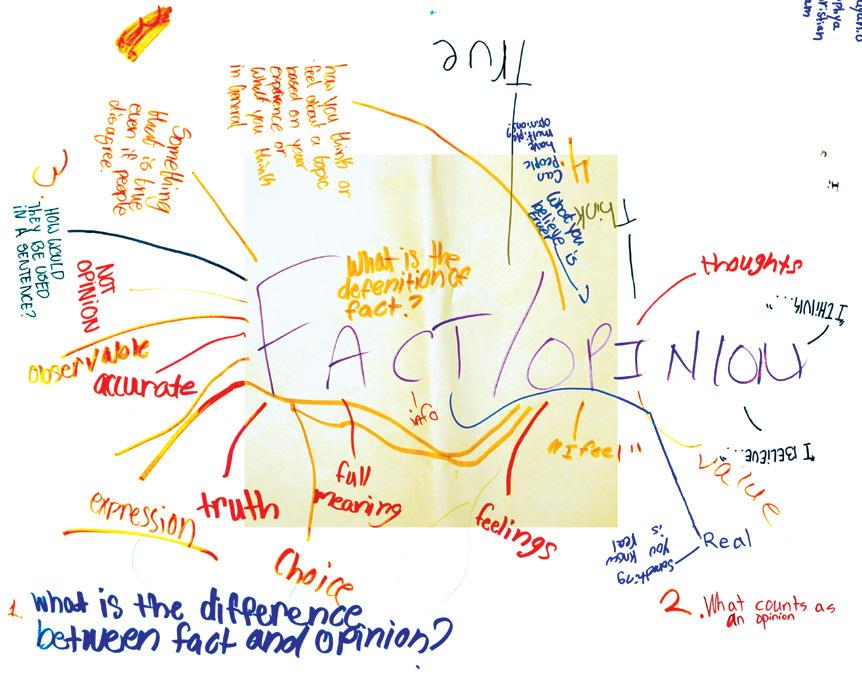 True
how you think or
feel about a topic
based on your
experience or
what you think
in General
Something
that is true
even if people
disagree.
4.
Can
People
have
multiple
opinions?
What you
believe is
Think
3.
HOW WOULD
THEY BE USED
IN A SENTENCE?
NOT
OPINION
What is the
defenition of
fact.?
thoughts
"I THINK..."
FACT/OPINION
observable
accurate
info
"I feel"
"I BELIEVE..."
value
full
meaning
truth
expression
feelings
Choice
Real
Something
you know
is real
1. what is the difference
between fact and opinion?
2. What counts as
an opinion